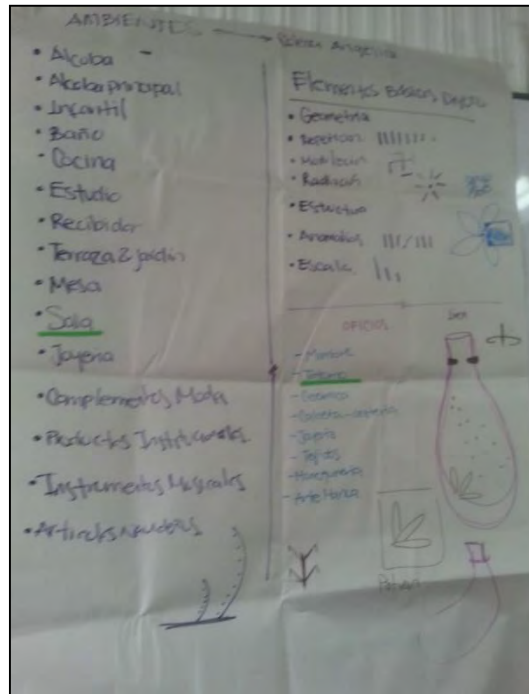 AMBIENTES
• Alcoba
• Alcoba principal
• Infantil
• Baño
• Cocina
• Estudio
• Recibidor
• Terraza & jardín
• Mesa
• Sala
• Joyeria
• Complementos Moda
• Productos Institucionales
• Instrumentos Musicales
• Articulos Navideños
Elementos Básicos
• Geometria
• Repeticion
• Radiacion
• Estructura
• Anomalias
• Escala
OFICIOS
- Ceramica
- Joyería
- Tejidos
- Marroquineria